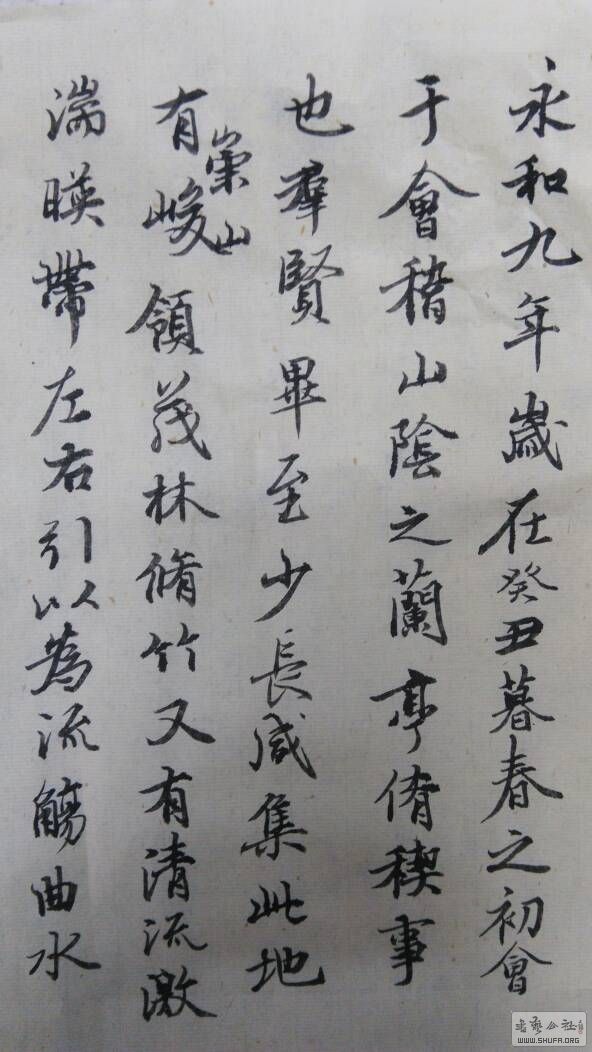 永和九年歲在癸丑暮春之初會
于會稽山陰之蘭亭脩稧事
也羣賢畢至少長咸集此地
有崇山峻領茂林脩竹又有清流激
湍暎帶左右引以為流觴曲水
书艺公社
WWW.SHUFA.ORG